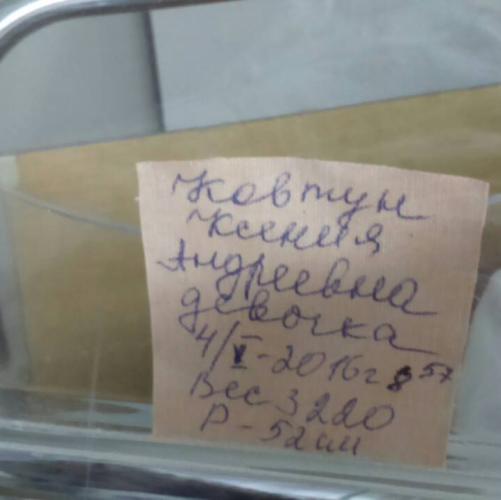 Ковтун
Ксения
Андреевна
девочка
4/X-2016г 8 57
Вес 3220
Р-52см